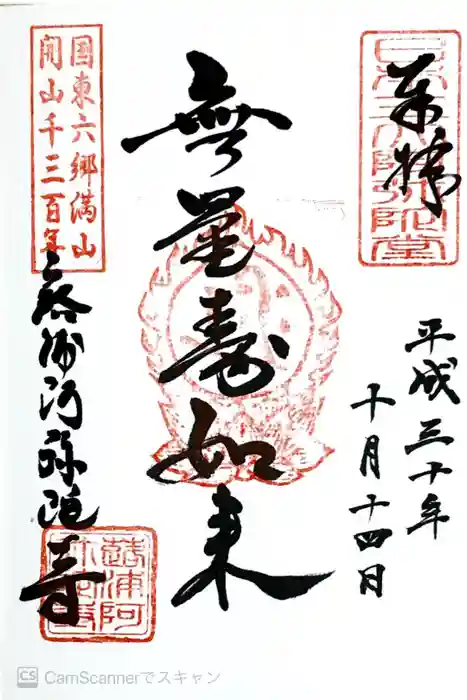 奉拝
日本三大阿弥陀堂
平成三十年
十月十四日
無量寿如来
国東六郷満山
開山千三百年
蕗浦阿弥陀寺
蕗浦阿
弥陀寺
CS CamScannerでスキャン